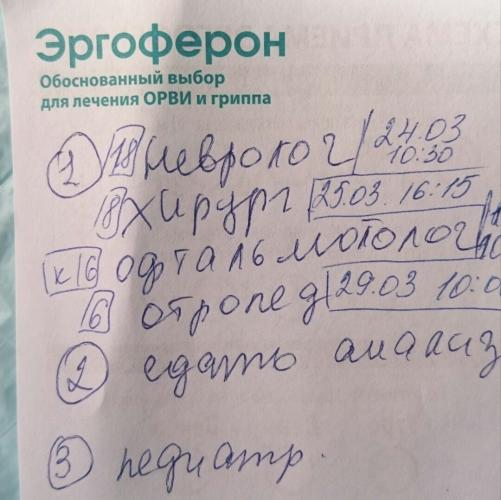 Эргоферон
Обоснованный выбор
для лечения ОРВИ и гриппа
1 18 невролог 24.03 10:30
18 хирург 25.03. 16:15
к 16 офтальмотолог
16 отропед 29.03 10:0
2 сдать анализ
3 педиатр.